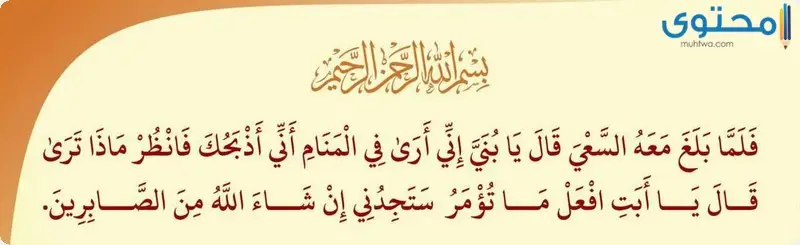 محتوى
muhtwa.com
بسم الله الرحمن الرحيم
فَلَمَّا بَلَغَ مَعَهُ السَّعْيَ قَالَ يَا بُنَيَّ إِنِّي أَرَىٰ فِي الْمَنَامِ أَنِّي أَذْبَحُكَ فَانْظُرْ مَاذَا تَرَىٰ
قَالَ يَا أَبَتِ افْعَلْ مَا تُؤْمَرُ سَتَجِدُنِي إِنْ شَاءَ اللَّهُ مِنَ الصَّابِرِينَ.